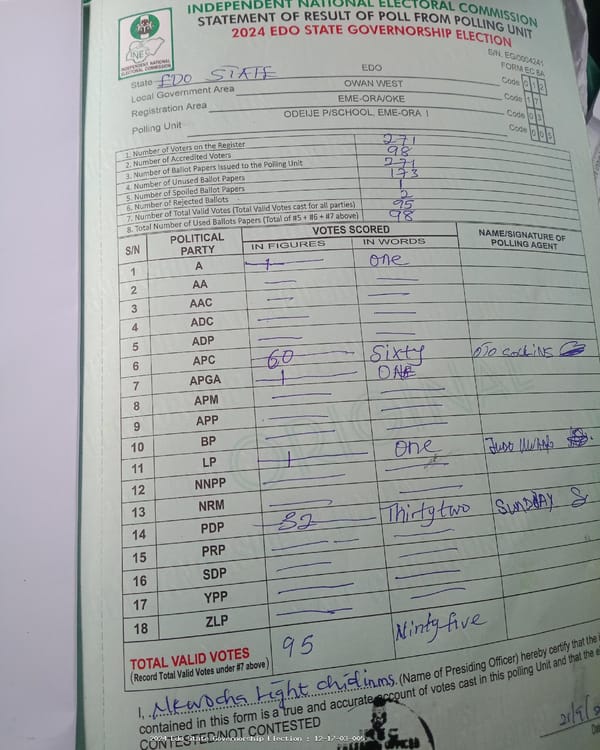 INDEPENDENT NATIONAL ELECTORAL COMMISSION
STATEMENT OF RESULT OF POLL FROM POLLING UNIT
2024 EDO STATE GOVERNORSHIP ELECTION
INDEPENDENT NATIONAL ELECTORAL COMMISSION
S/N, EG/0004241
FORM EC 8A
State EDO STATE EDO Code 012
Local Government Area OWAN WEST Code 17
Registration Area EME-ORA/OKE Code 03
Polling Unit ODEIJE P/SCHOOL, EME-ORA I Code 005
1. Number of Voters on the Register 271
2. Number of Accredited Voters 98
3. Number of Ballot Papers Issued to the Polling Unit 271
4. Number of Unused Ballot Papers 173
5. Number of Spoiled Ballot Papers 1
6. Number of Rejected Ballots 2
7. Number of Total Valid Votes (Total Valid Votes cast for all parties) 95
8. Total Number of Used Ballots Papers (Total of #5 + #6 + #7 above) 98
S/N POLITICAL PARTY VOTES SCORED NAME/SIGNATURE OF POLLING AGENT
IN FIGURES IN WORDS
1 A 1 one
2 AA
3 AAC
4 ADC
5 ADP
6 APC 60 Sixty OJO COLLINS
7 APGA 1 ONE
8 APM
9 APP
10 BP
11 LP 1 One
12 NNPP
13 NRM
14 PDP 32 Thirty two SUNDAY
15 PRP
16 SDP
17 YPP
18 ZLP
TOTAL VALID VOTES 95 Ninty five
(Record Total Valid Votes under #7 above)
I, Nkwocha Light chidinma (Name of Presiding Officer) hereby certify that the
contained in this form is a true and accurate account of votes cast in this polling Unit and that the
CONTESTED/NOT CONTESTED
2024 Edo State Governorship Election : 12-17-03-005